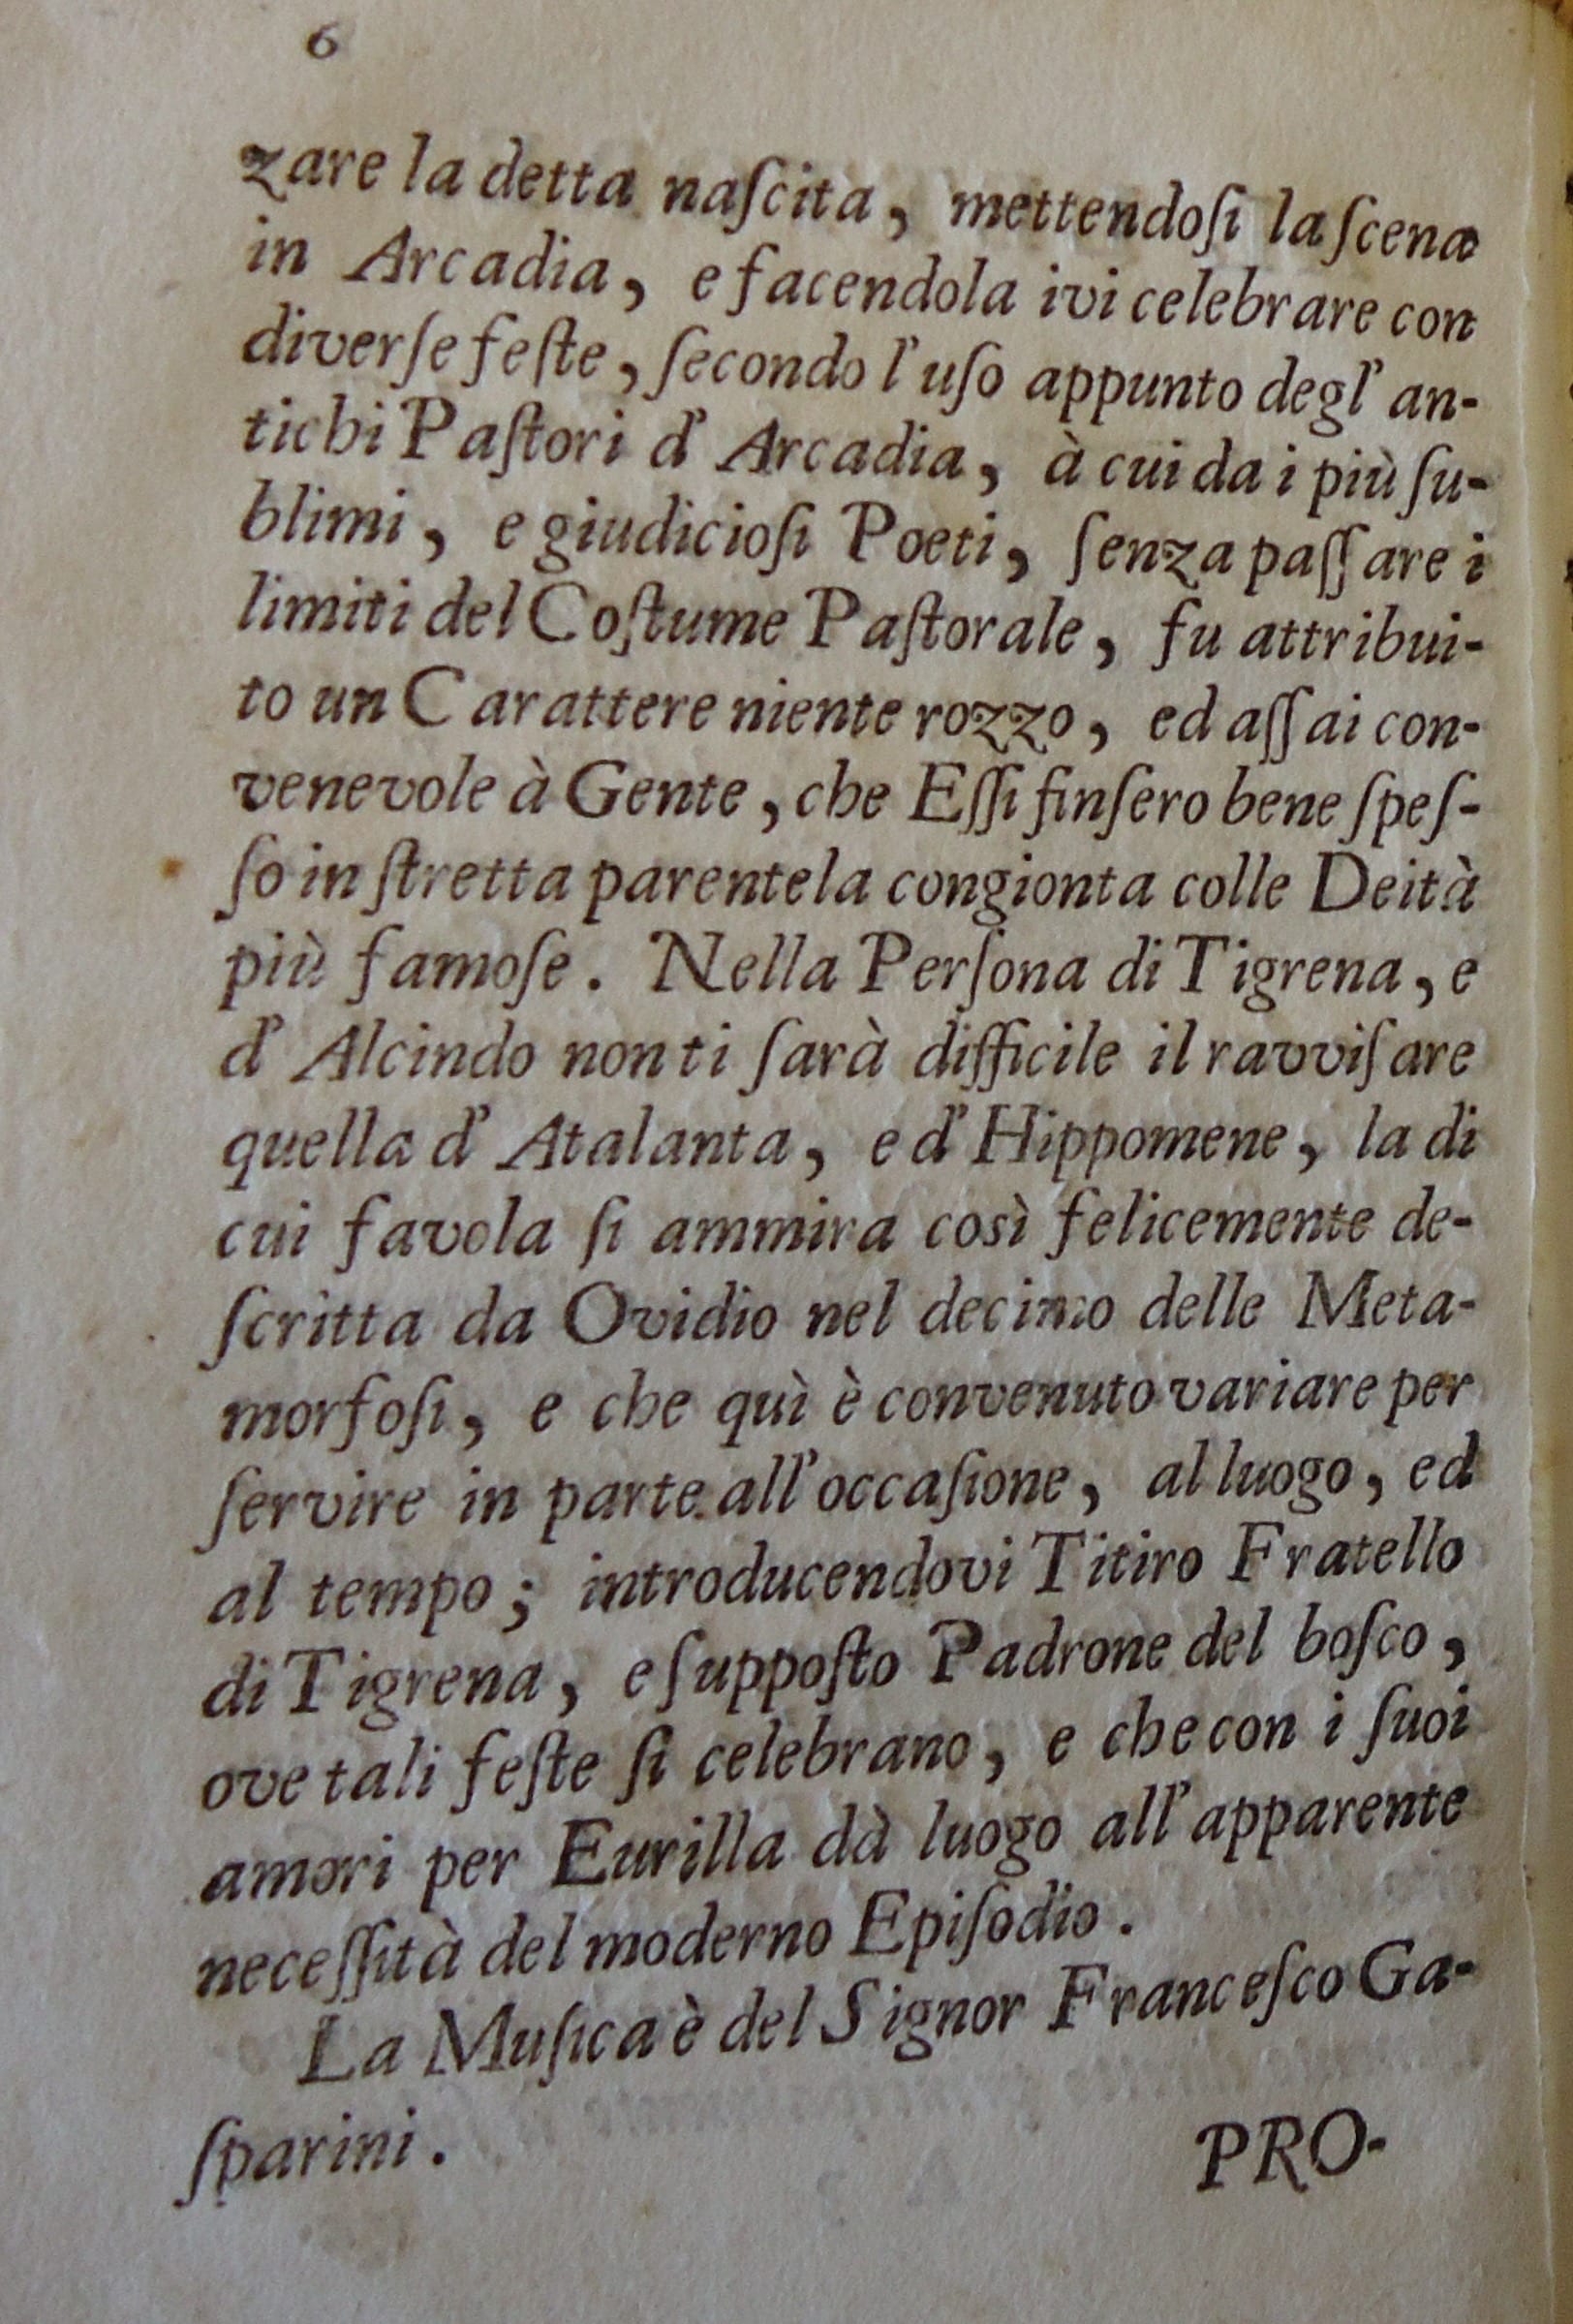 6
zare la detta naſcita, mettendoſi la ſcena
in Arcadia, e facendola ivi celebrare con
diverſe feſte, ſecondo l'uſo appunto degl' an-
tichi Paſtori d' Arcadia, à cui da i più ſu-
blimi, e giudicioſi Poeti, ſenza paſſare i
limiti del Coſtume Paſtorale, fu attribui-
to un Carattere niente rozzo, ed aſſai con-
venevole à Gente, che Eſſi finſero bene ſpeſ-
ſo in ſtretta parentela congionta colle Deità
più famoſe. Nella Perſona di Tigrena, e
d' Alcindo non ti ſarà difficile il ravviſare
quella d' Atalanta, e d' Hippomene, la di
cui favola ſi ammira così felicemente de-
ſcritta da Ovidio nel decimo delle Meta-
morfoſi, e che quì è convenuto variare per
ſervire in parte all' occaſione, al luogo, ed
al tempo; introducendovi Titiro Fratello
di Tigrena, e ſuppoſto Padrone del boſco,
ove tali feſte ſi celebrano, e che con i ſuoi
amori per Eurilla dà luogo all' apparente
neceſſità del moderno Epiſodio.
La Muſica è del Signor Franceſco Ga-
ſparini.
PRO-